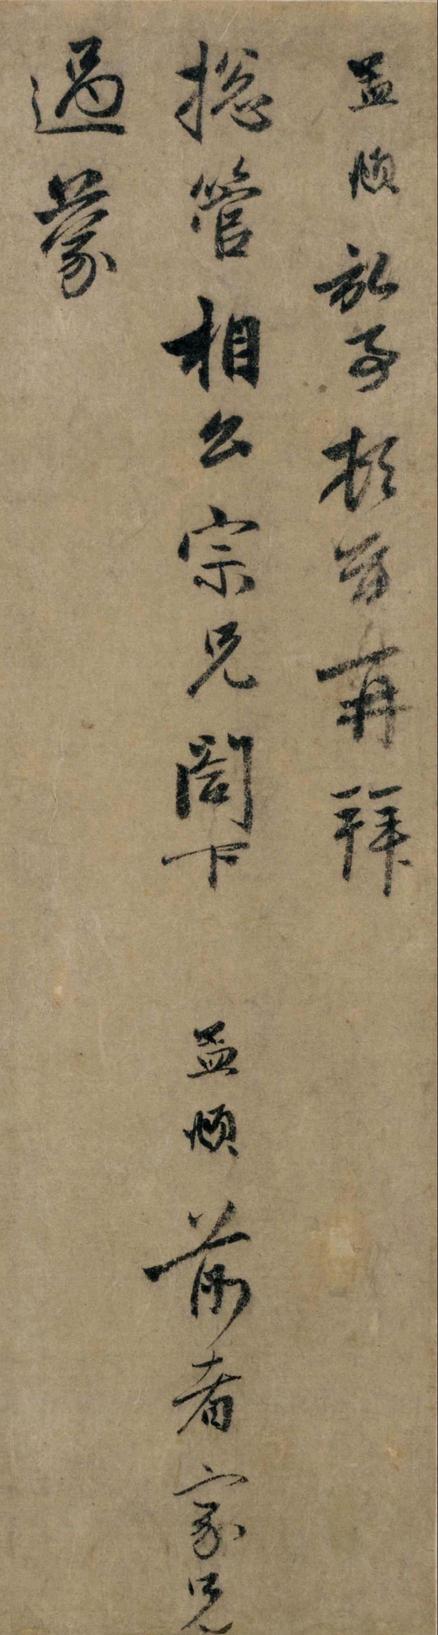 孟頫記事頓首再拜
捴管相公宗兄閣下 孟頫前者家兄
過蒙